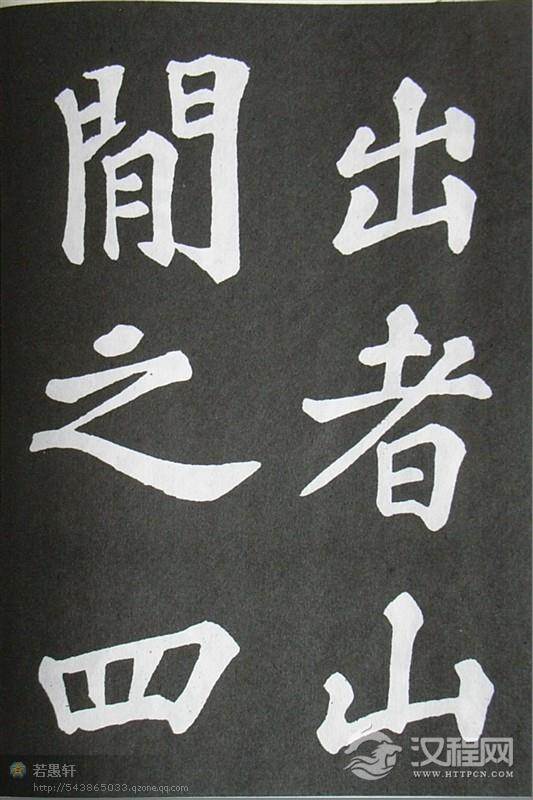 出者山
閒之四
若愚轩
http://543865033.qzone.qq.com
汉程网
WWW.HTTPCN.COM